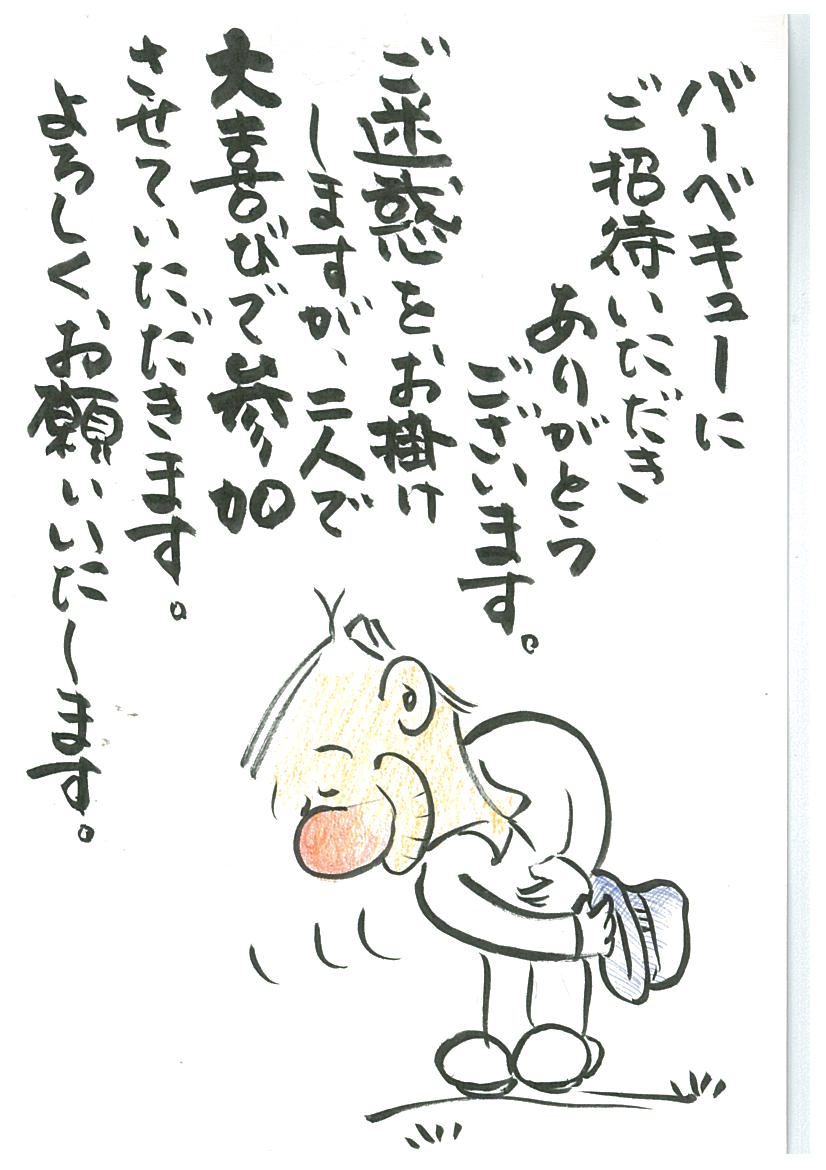 バーベキューに
ご招待いただき
ありがとう
ございます。
ご迷惑を、お掛け
しますが、二人で
大喜びで参加
させていただきます。
よろしく、お願いいたします。